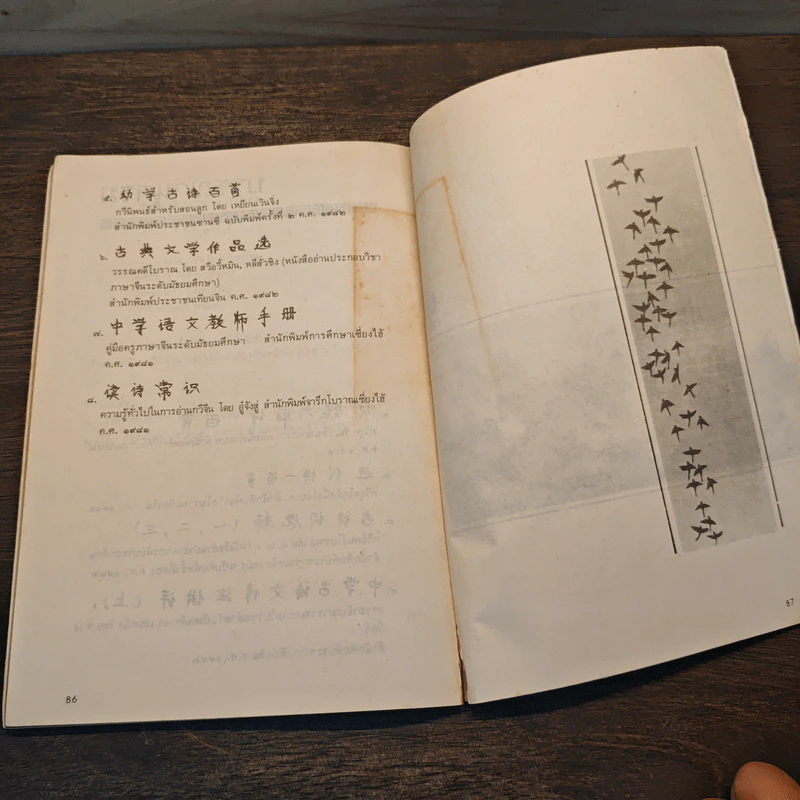 ๕. 幼学古诗百首
กวีนิพนธ์สำหรับสอนลูก โดย เหยียนเวินจิ่ง
สำนักพิมพ์ประชาชนซานซี ฉบับพิมพ์ครั้งที่ ๒ ค.ศ. ๑๙๘๒
๖. 古典文学作品选
วรรณคดีโบราณ โดย สวีอวี้หมิน, หลี่สั่วชิง (หนังสืออ่านประกอบวิชา
ภาษาจีนระดับมัธยมศึกษา)
สำนักพิมพ์ประชาชนเทียนจิน ค.ศ. ๑๙๘๒
๗. 中学语文教师手册
คู่มือครูภาษาจีนระดับมัธยมศึกษา สำนักพิมพ์การศึกษาเซี่ยงไฮ้
ค.ศ. ๑๙๘๑
๘. 读诗常识
ความรู้ทั่วไปในการอ่านกวีจีน โดย อู๋จังสู่ สำนักพิมพ์จารึกโบราณเซี่ยงไฮ้
ค.ศ. ๑๙๘๑
86
87